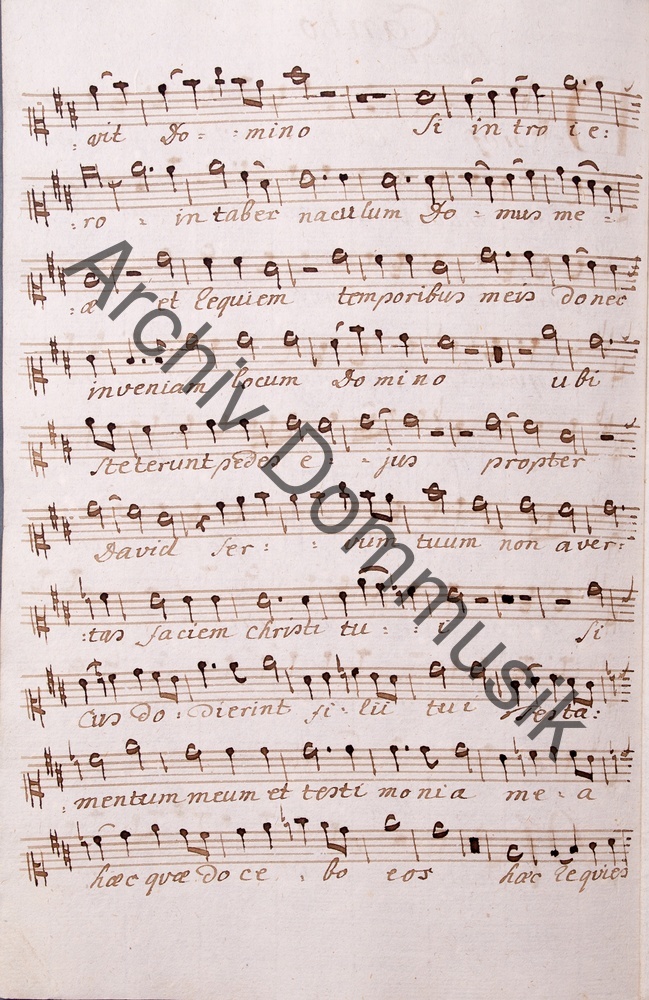 : vit Do - : mino Si in tro ie :
: ro - in taber naculum Do - mus me -
: æ et requiem temporibus meis donec
inveniam locum Do mi no u bi
steterunt pedes e - : - jus propter
David ser : - vum tuum non a ver :
: tas faciem christi tu : : i si
Cus do : dierint fi - lii tui testa :
: mentum meum et testi mo ni a me - a
hæc quæ do ce . bo eos hæc requies
Archiv Dommusik